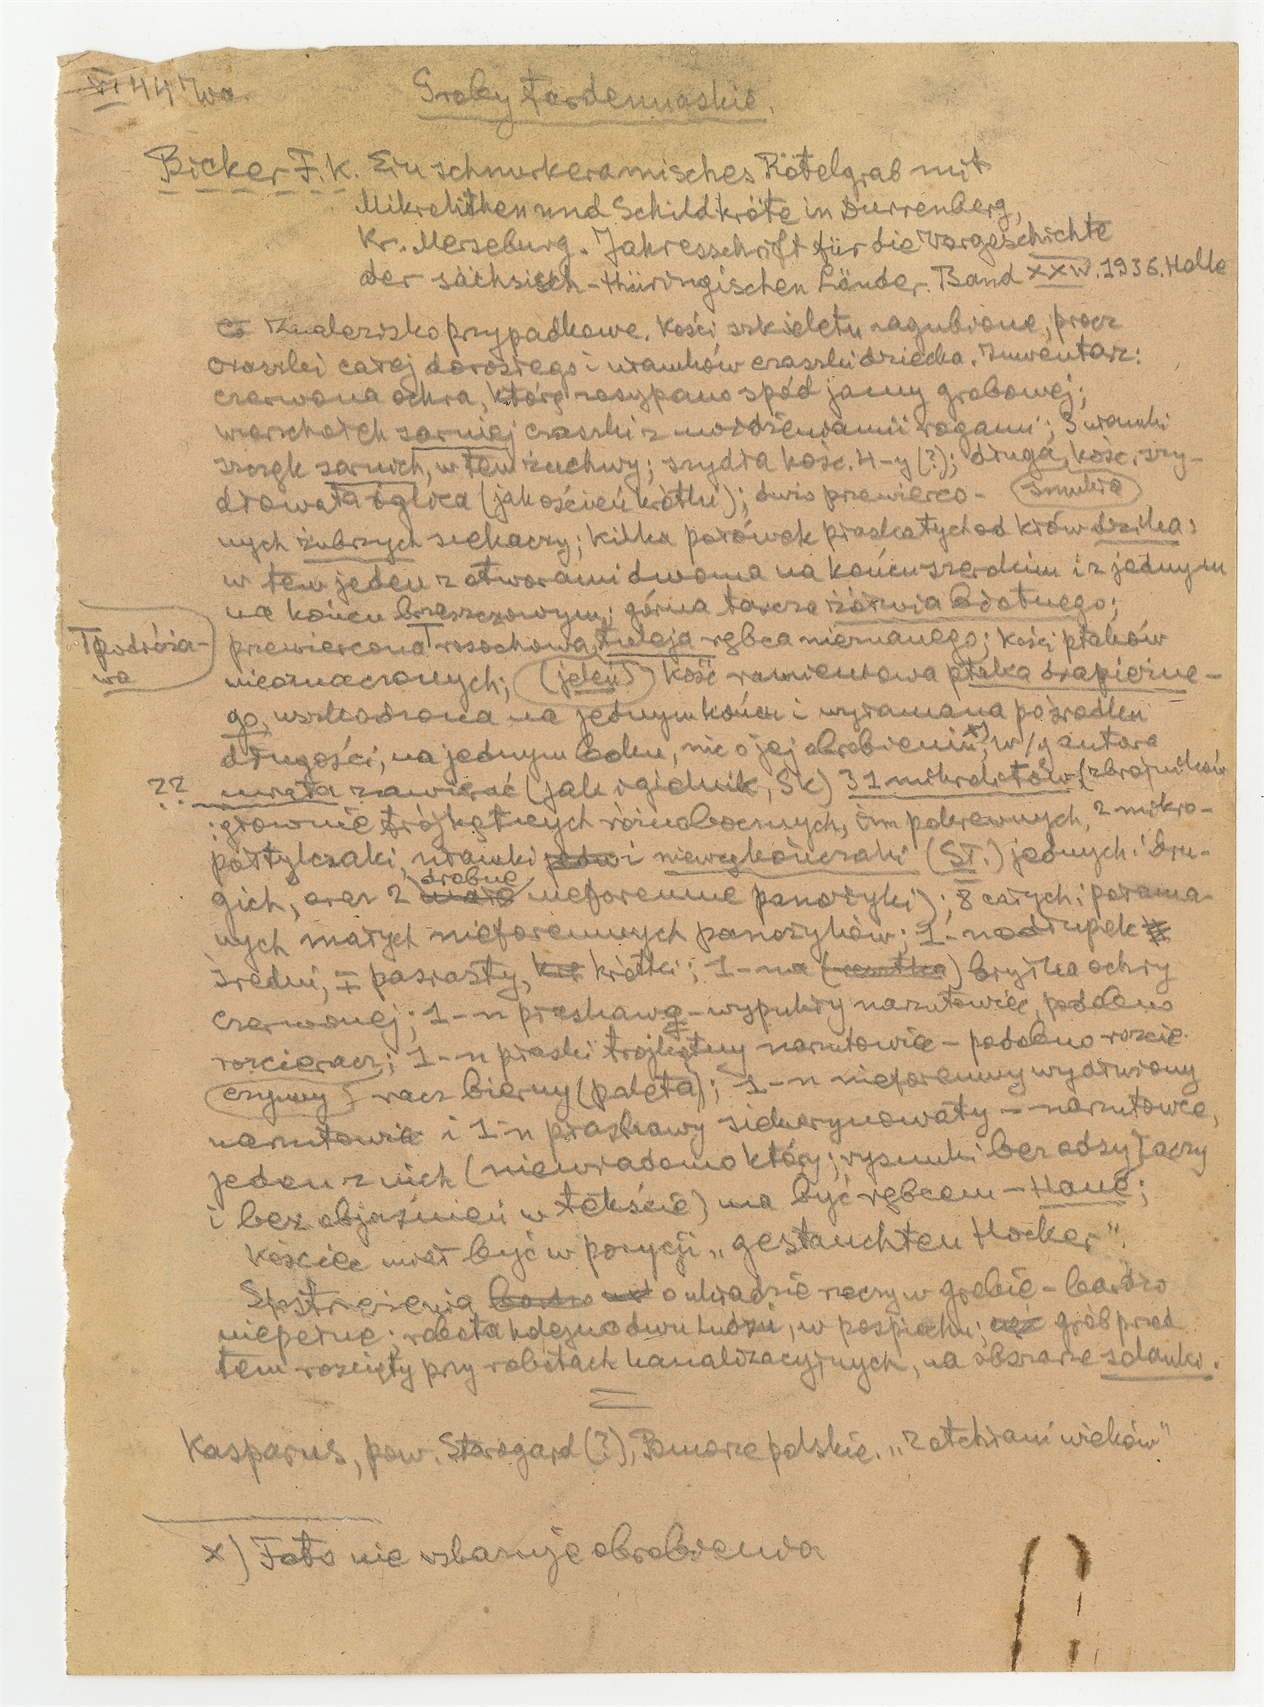 VI 44 Wa.
Groby tardenuaskie.
Bicker F.K. Ein schnurkeramisches Rötelgrab mit
Mikrolithen und Schildkröte in Dürrenberg,
Kr. Merseburg. Jahresschrift für die Vorgeschichte
der sächsisch-thüringischen Länder. Band XXIV. 1936. Halle
Znalezisko przypadkowe. Kości szkieletu zagubione, prócz
czaszki całej dorosłego i ułamków czaszki dziecka. Inwentarz:
czerwona ochra, którą zasypano spód jamy grobowej;
wierzchołek sarniej czaszki z rogami; 3 ułamki
szczęk sarnich, w tem żuchwy; szydła kośc. 4-y (?); długa, kośc. szy-
dłowata iglica (jak oścień krótki); dwie przewierco- smukła
nych żubrzych siekaczy; kilka połówek płaskatych od kłów dzika:
w tem jeden z otworami dwoma na końcu szerokim i z jednym
na końcu brzeszczowym; górna tarcza żółwia błotnego;
Tpodróża-
wa
przewiercona T rosochowa, tuleja rębca nieznanego; kości ptaków
nieoznaczonych; (jeleń) kość ramieniowa ptaka drapieżne-
go, uszkodzona na jednym końcu i wyłamana pośrodku
długości, na jednym boku, nic o jej obrobieniu x), w/g autora
?? miała zawierać (jak igielnik, Sk) 31 mikrolitów (zbrojników
głównie trójkątnych różnobocznych, im pokrewnych, 2 mikro-
półtylczaki, ułamki i niewykończaki (ST.) jednych i dru-
gich, oraz 2 drobne nieforemne paznożyki); 8 całych i połama-
nych małych nieforemnych paznożyków; 1-n odłupek
średni, ∓ pasiasty, krótki; 1-na bryłka ochry
czerwonej; 1-n płaskawo-wypukły narzutowiec, podobno
rozcieracz; 1-n płaski trójkątny narzutowiec - podobno rozcie-
czynny racz bierny (paleta); 1-n nieforemny wydłużony
narzutowiec i 1-n płaskawy siekierynowaty - narzutowce,
jeden z nich (niewiadomo który; rysunki bez odsyłaczy
i bez objaśnień w tekście) ma być rębcem - Haue;
Kościec miał być w pozycji „gestauchten Hocker".
Spostrzeżenia o układzie rzeczy w grobie - bardzo
niepełne; robota jednodwu ludzi, w pospiechu; grób przed
tem rozcięty przy robotach kanalizacyjnych, na obszarze solanki.
=
Kasparus, pow. Starogard (?), Pomorze polskie. „Z otchłani wieków"
x) Foto nie wskazuje obrobienia